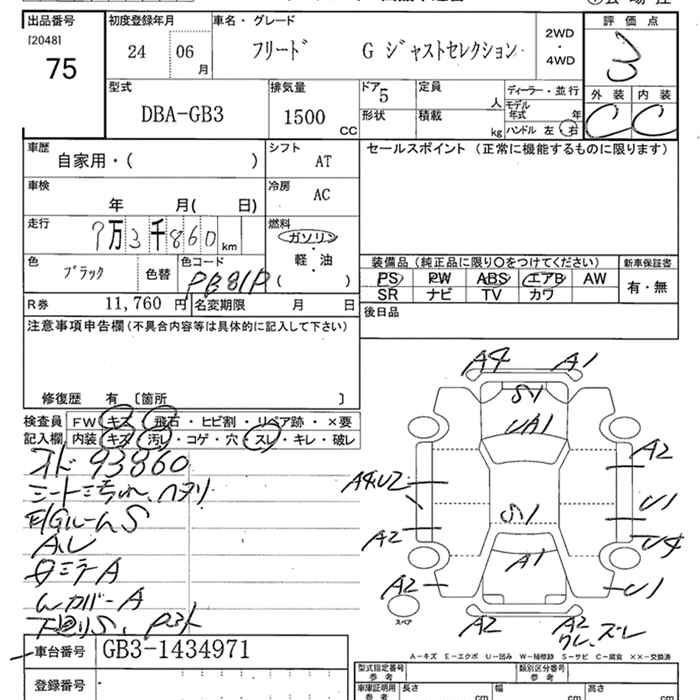 出品番号 初度登録年月 車名・グレード 評価点
[2048] 75 24 06月 フリード G ジャストセレクション 2WD・4WD 3
型式 排気量 ドア 5 定員 人 ディーラー・並行 外装 内装
DBA-GB3 1500 CC 形状 積載 kg モデル年式 年 C C
ハンドル 左 右
車歴 自家用・( ) シフト AT セールスポイント (正常に機能するものに限ります)
車検 年 月( 日) 冷房 AC
走行 9万3千860km 燃料 ガソリン・軽・油 ( )
色 ブラック 色替 色コード PB81P 装備品 (純正品に限り○をつけてください) 新車保証書
PS PW ABS エアB AW 有・無
SR ナビ TV カワ
R券 11,760円 名変期限 月 日 後日品
注意事項申告欄 (不具合内容等は具体的に記入して下さい)
修復歴 有 〔箇所 〕
検査員 FW キズ・飛石・ヒビ割・リペア跡・×要
記入欄 内装 キズ・汚レ・コゲ・穴・スレ・キレ・破レ
オド 93860
シートミ汚れ、ヘタリ
E/GルームS
ALレ
ミラA
カバーA
下廻りS、
A4 A1
S1
UA1
A2
A4.U2
U1
S1
A2
U4
A1
A2
U1
スペア
A2 A2
ワレ、ズレ
A-キズ E-エクボ U-凹み W-補修跡 S-サビ C-腐食 ××-交換済
車台番号 GB3-1434971
型式指定番号 参考 類別区分番号 参考
登録番号 -
車庫証明用 参考 長さ cm 幅 cm 高さ cm